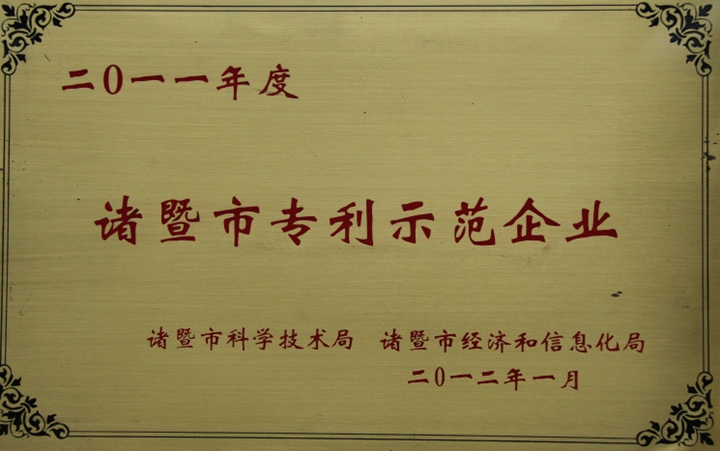 二0一一年度
诸暨市专利示范企业
诸暨市科学技术局 诸暨市经济和信息化局
二0一二年一月